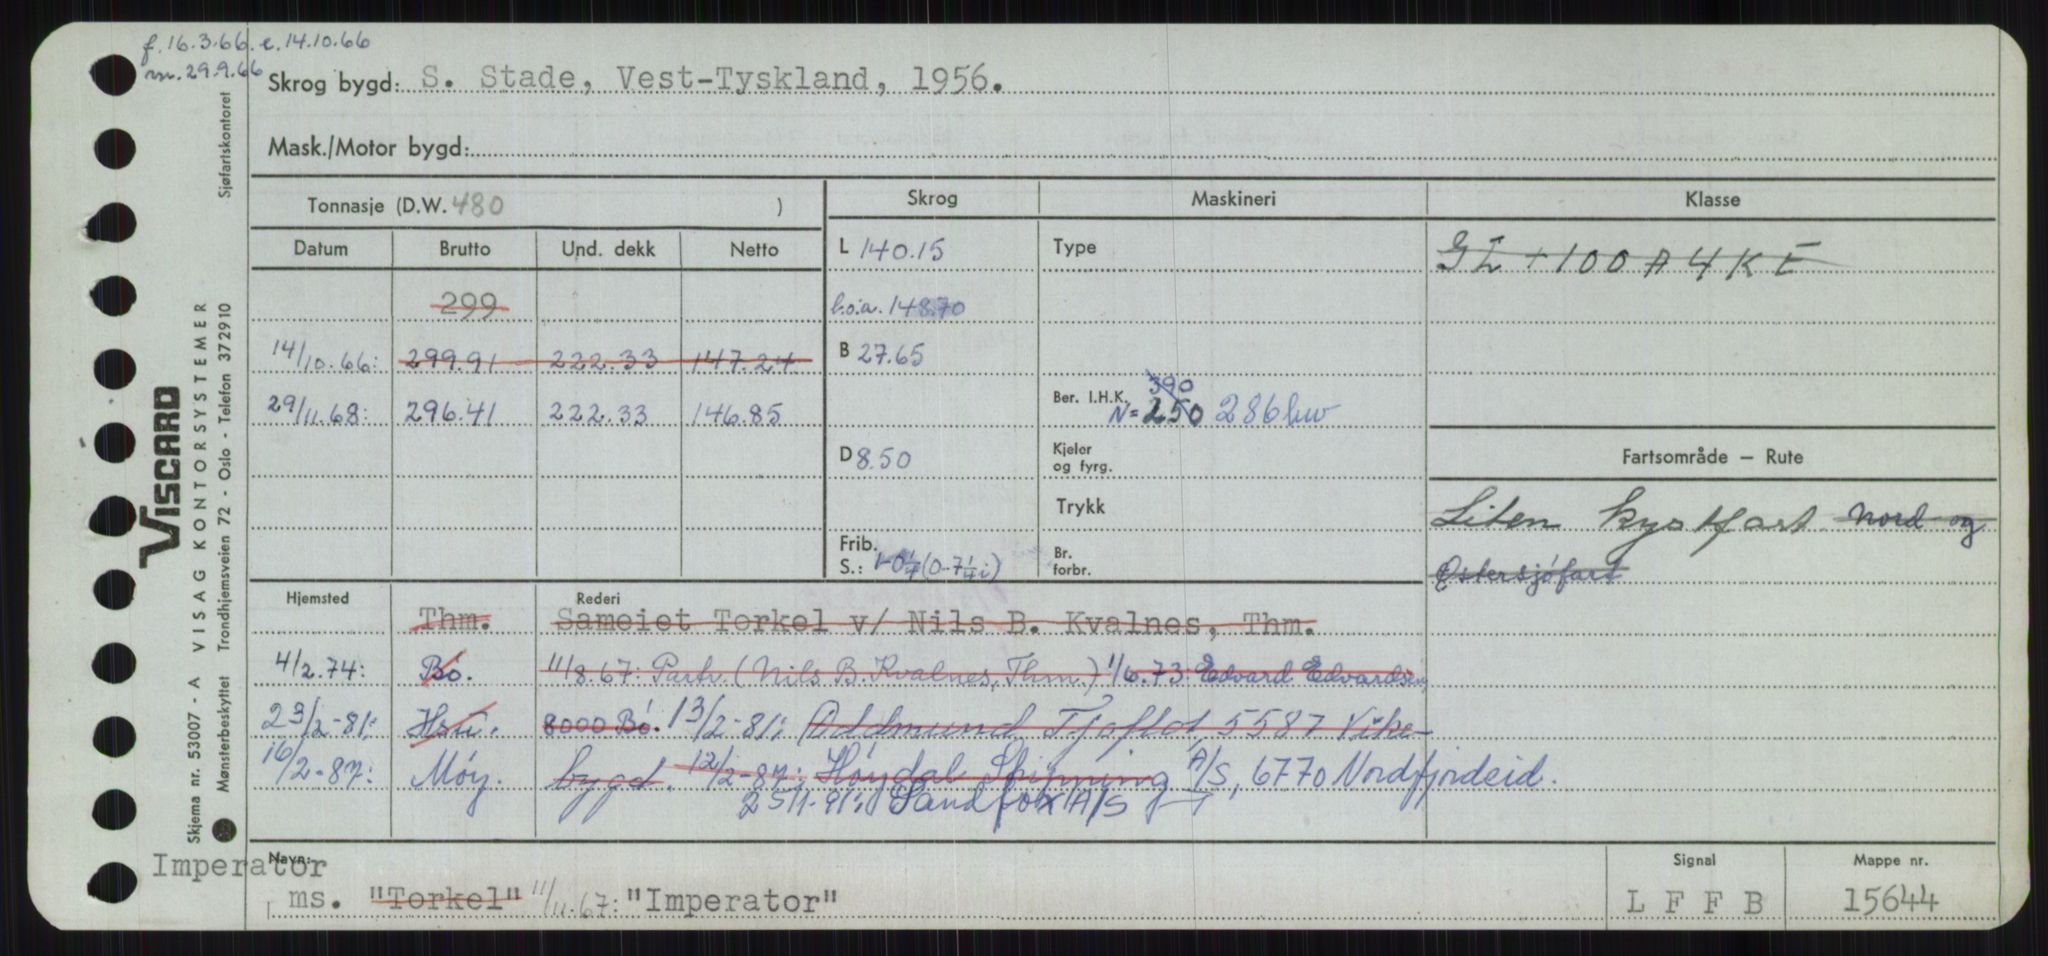 f. 16.3.66. e. 14.10.66
m. 29.9.66
Skrog bygd: S. Stade, Vest-Tyskland, 1956.
Mask./Motor bygd:
Tonnasje (D.W. 480 )
Skrog Maskineri Klasse
Datum Brutto Und. dekk Netto
L 140.15 Type GL + 100 A 4 K E
299 l.o.a. 148.70
14/10.66: 299.91 222.33 147.24 B 27.65
390
29/11.68: 296.41 222.33 146.85 Ber. I.H.K. N = 250 286 hw
D 8.50 Kjeler og fyrg. Fartsområde – Rute
Trykk Liten kystfart Nord og
Frib. S.: 1-0¼ (0-7¼ i) Br. forbr. Østersjøfart
Hjemsted Rederi
Thm. Sameiet Torkel v/ Nils B. Kvalnes, Thm.
4/2.74: Bø. 11/8.67: Partr. (Nils B. Kvalnes, Thm.) 1/6.73: Edvard Edvardsen,
23/2-81: Hsu. 8000 Bø. 13/2-81: Oddmund Tjoflot, 5587 Vike-
16/2-87: Møy. bygd. 12/2-87: Høydal Shipping A/S, 6770 Nordfjordeid.
25/1-91: Sandfox A/S
Imperator
Navn: ms. "Torkel" 11/11.67: "Imperator"
Signal L F F B
Mappe nr. 15644
VISCARD
VISAG KONTORSYSTEMER
Skjema nr. 53007 - A
Mønsterbeskyttet Trondhjemsveien 72 - Oslo - Telefon 372910 Sjøfartskontoret